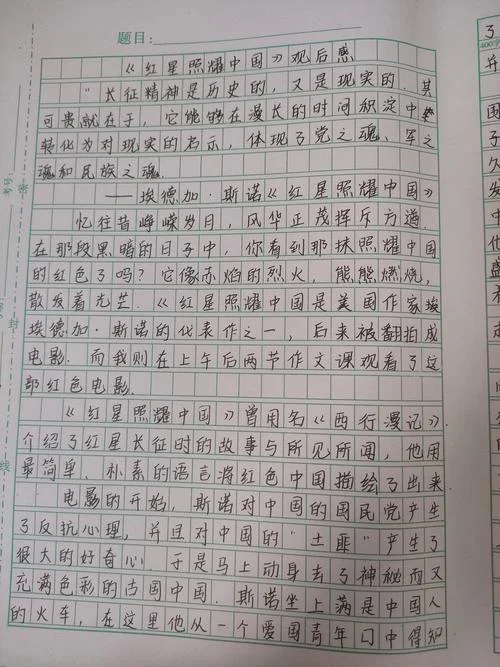 题目：
《红星照耀中国》观后感
"长征精神是历史的，又是现实的．其
可贵就在于，它能够在漫长的时间积淀中
转化为对现实的启示，体现了党之魂、军之
魂和民族之魂．
——埃德加·斯诺《红星照耀中国》
忆往昔峥嵘岁月，风华正茂挥斥方遒．
在那段黑暗的日子中，你看到那抹照耀中国
的红色了吗？它像赤焰的烈火，熊熊燃烧，
散发着光芒．《红星照耀中国是美国作家埃
埃德加·斯诺的代表作之一，后来被翻拍成
电影．而我则在上午后两节作文课观看了这
部红色电影．
《红星照耀中国》曾用名《西行漫记》
介绍了红星长征时的故事与所见所闻，他用
最简单、朴素的语言将红色中国描绘了出来
电影的开始，斯诺对中国的国民党产生
了反抗心理，并且对中国的"土匪"产生了
很大的好奇心．于是马上动身去了神秘而又
充满色彩的古国中国．斯诺坐上满是中国人
的火车，在这里他从一个爱国青年口中得知
考号：
密
封
线
了
400字
并
国